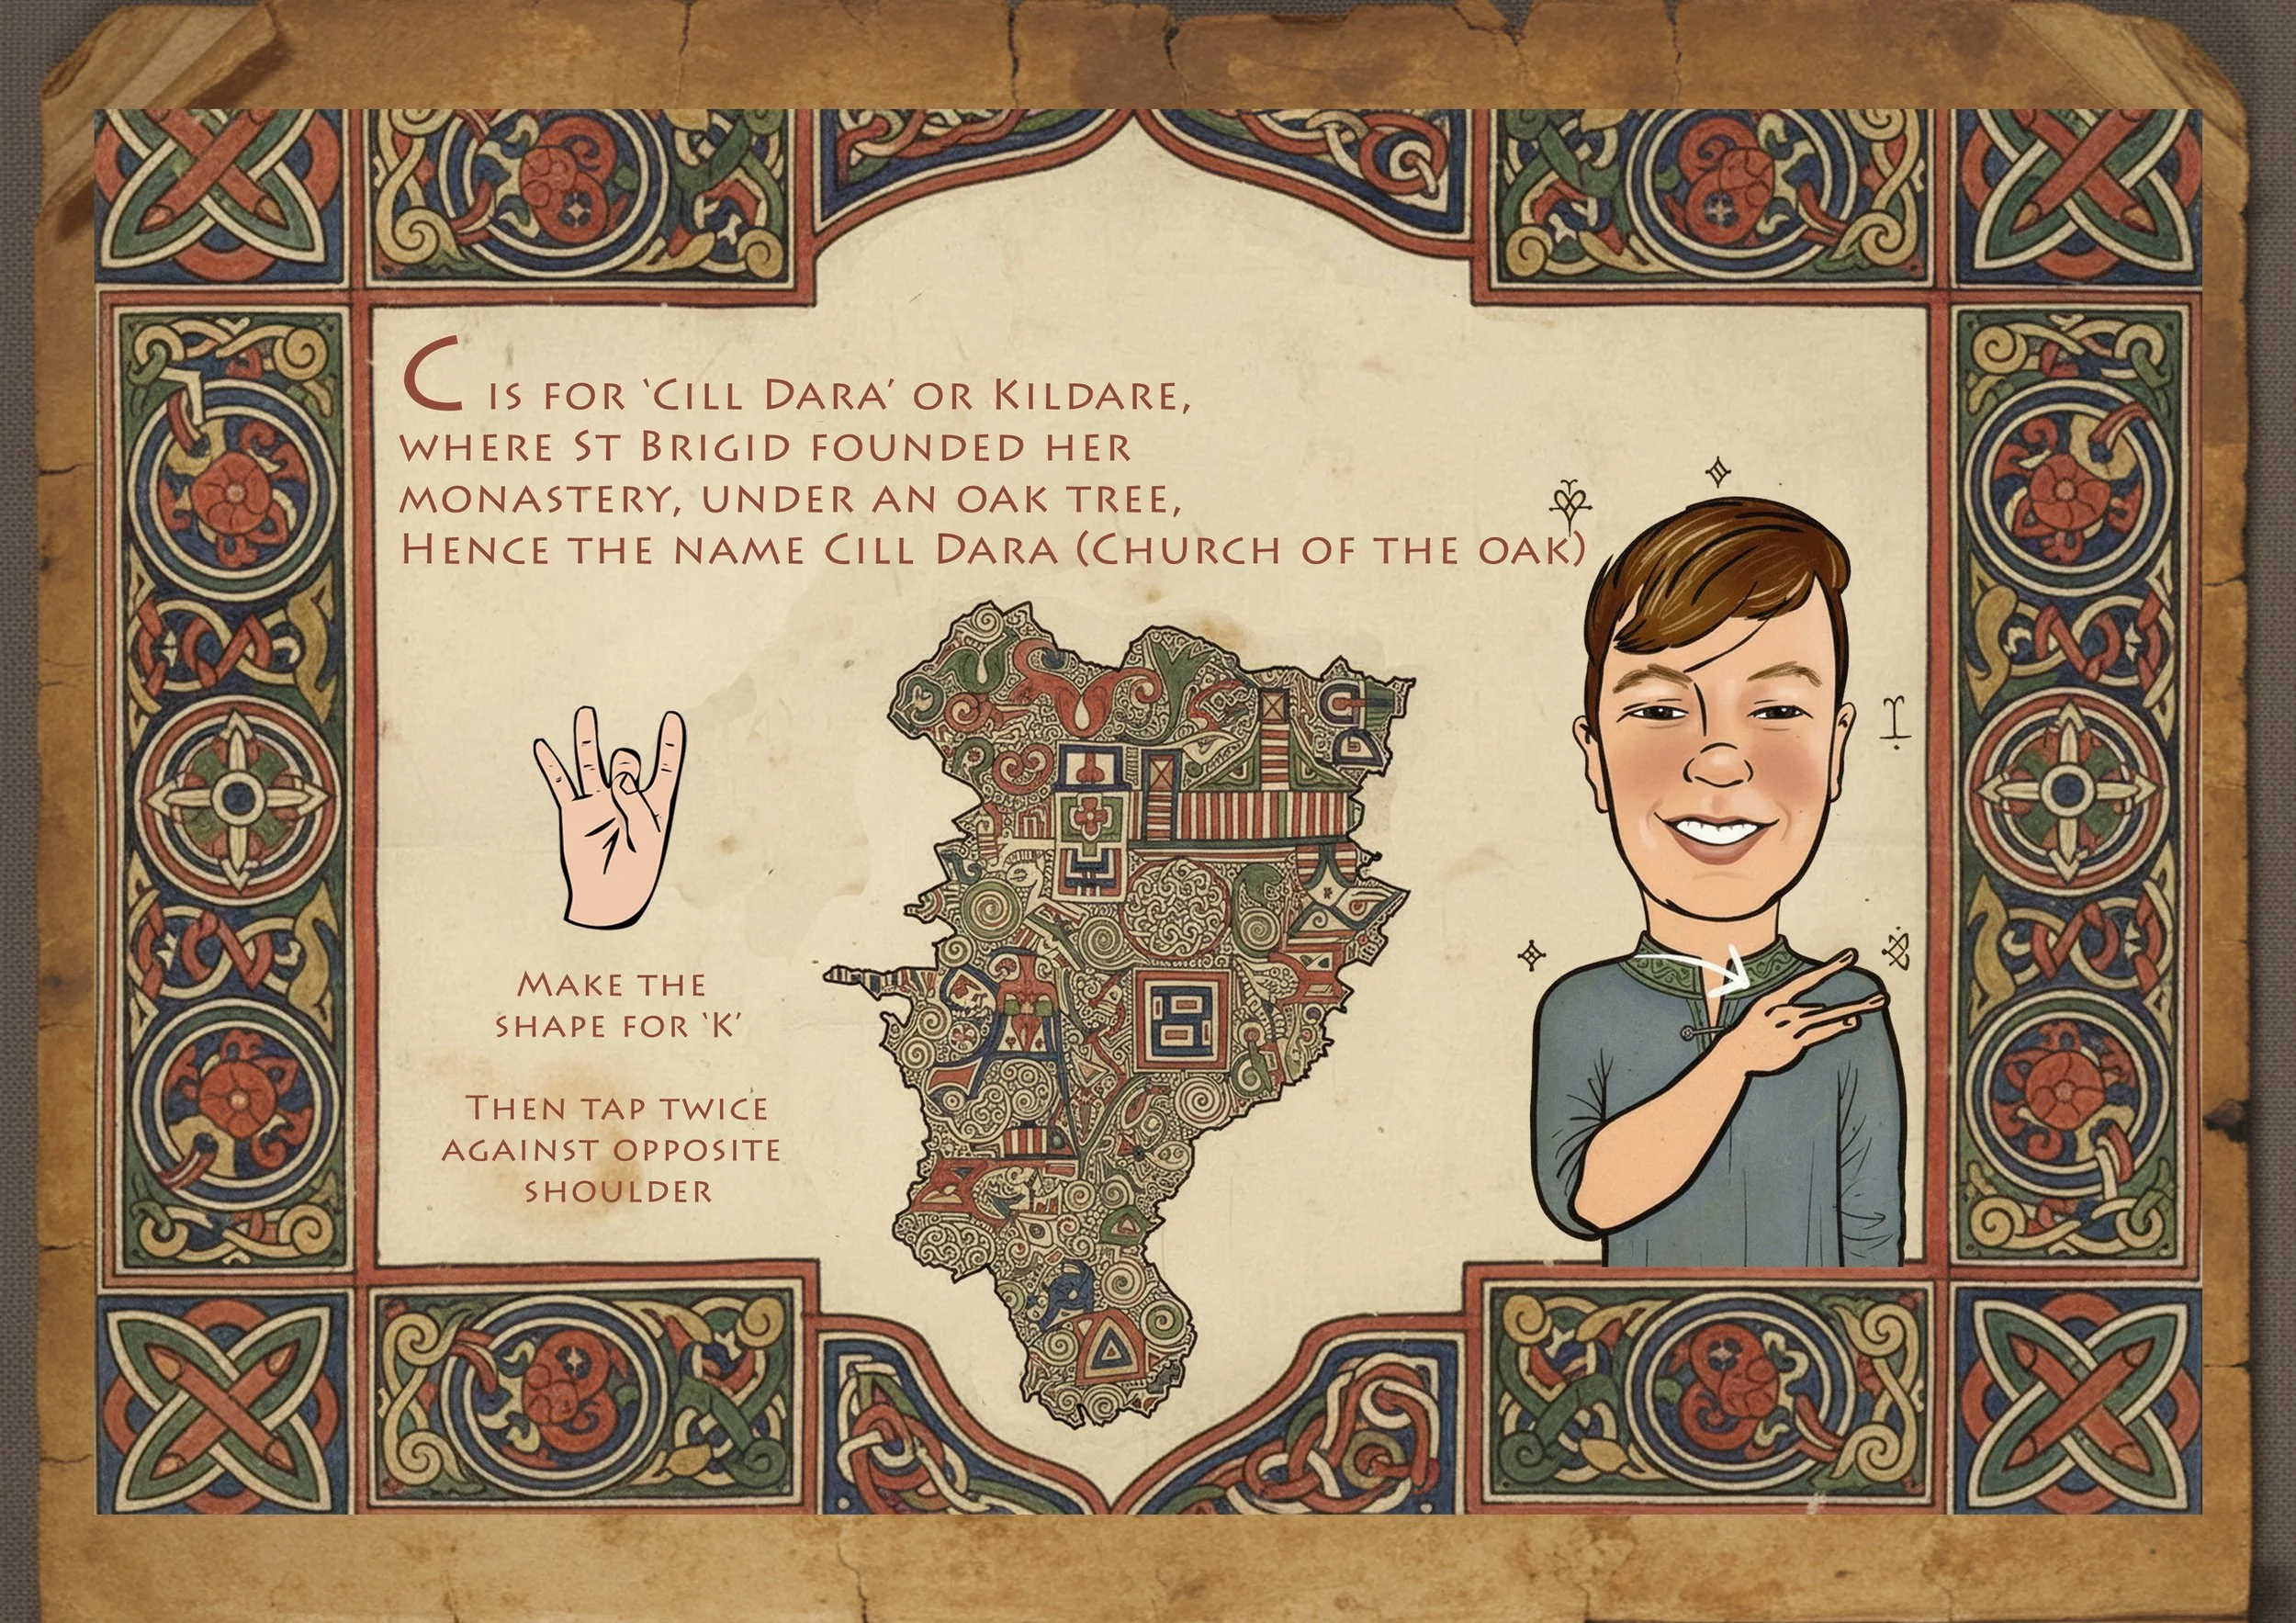 C IS FOR ‘CILL DARA’ OR KILDARE,
WHERE ST BRIGID FOUNDED HER
MONASTERY, UNDER AN OAK TREE,
HENCE THE NAME CILL DARA (CHURCH OF THE OAK)
MAKE THE
SHAPE FOR ‘K’
THEN TAP TWICE
AGAINST OPPOSITE
SHOULDER